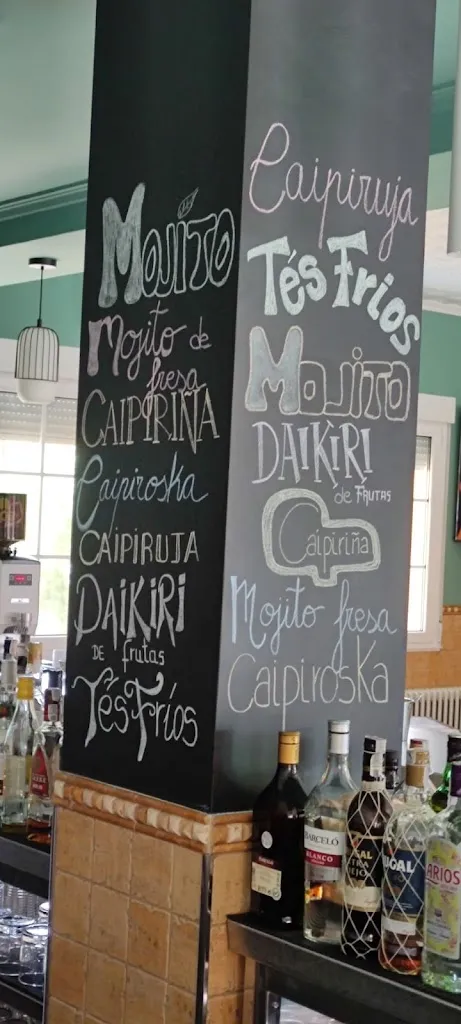 Mojito
Mojito de
fresa
CAIPIRIÑA
Caipiroska
CAIPIRUJA
DAiKiRi
DE frutas
Tés Fríos
Caipiruja
Tés Frios
MOJITO
DAIKIRI
de FRUTAS
Caipiriña
Mojito fresa
CaipirosKa
BARCELÓ
BLANCO